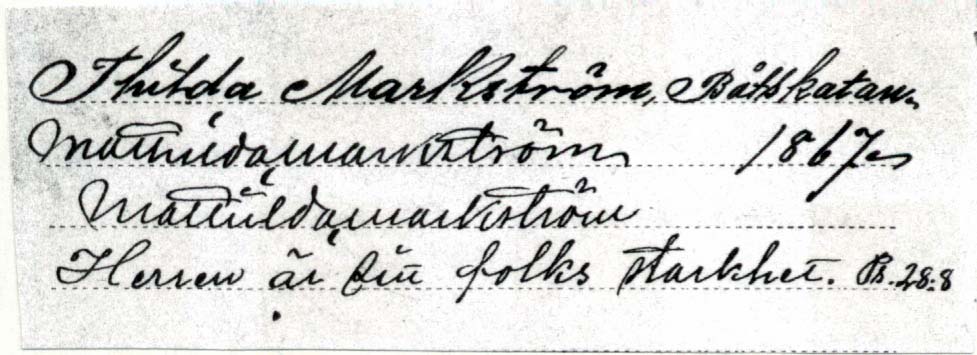 Thilda Markström, Båtskatan.
Matthilda Markström 1867
Matthilda Markström
Herren är sitt folks starkhet. Ps. 28:8